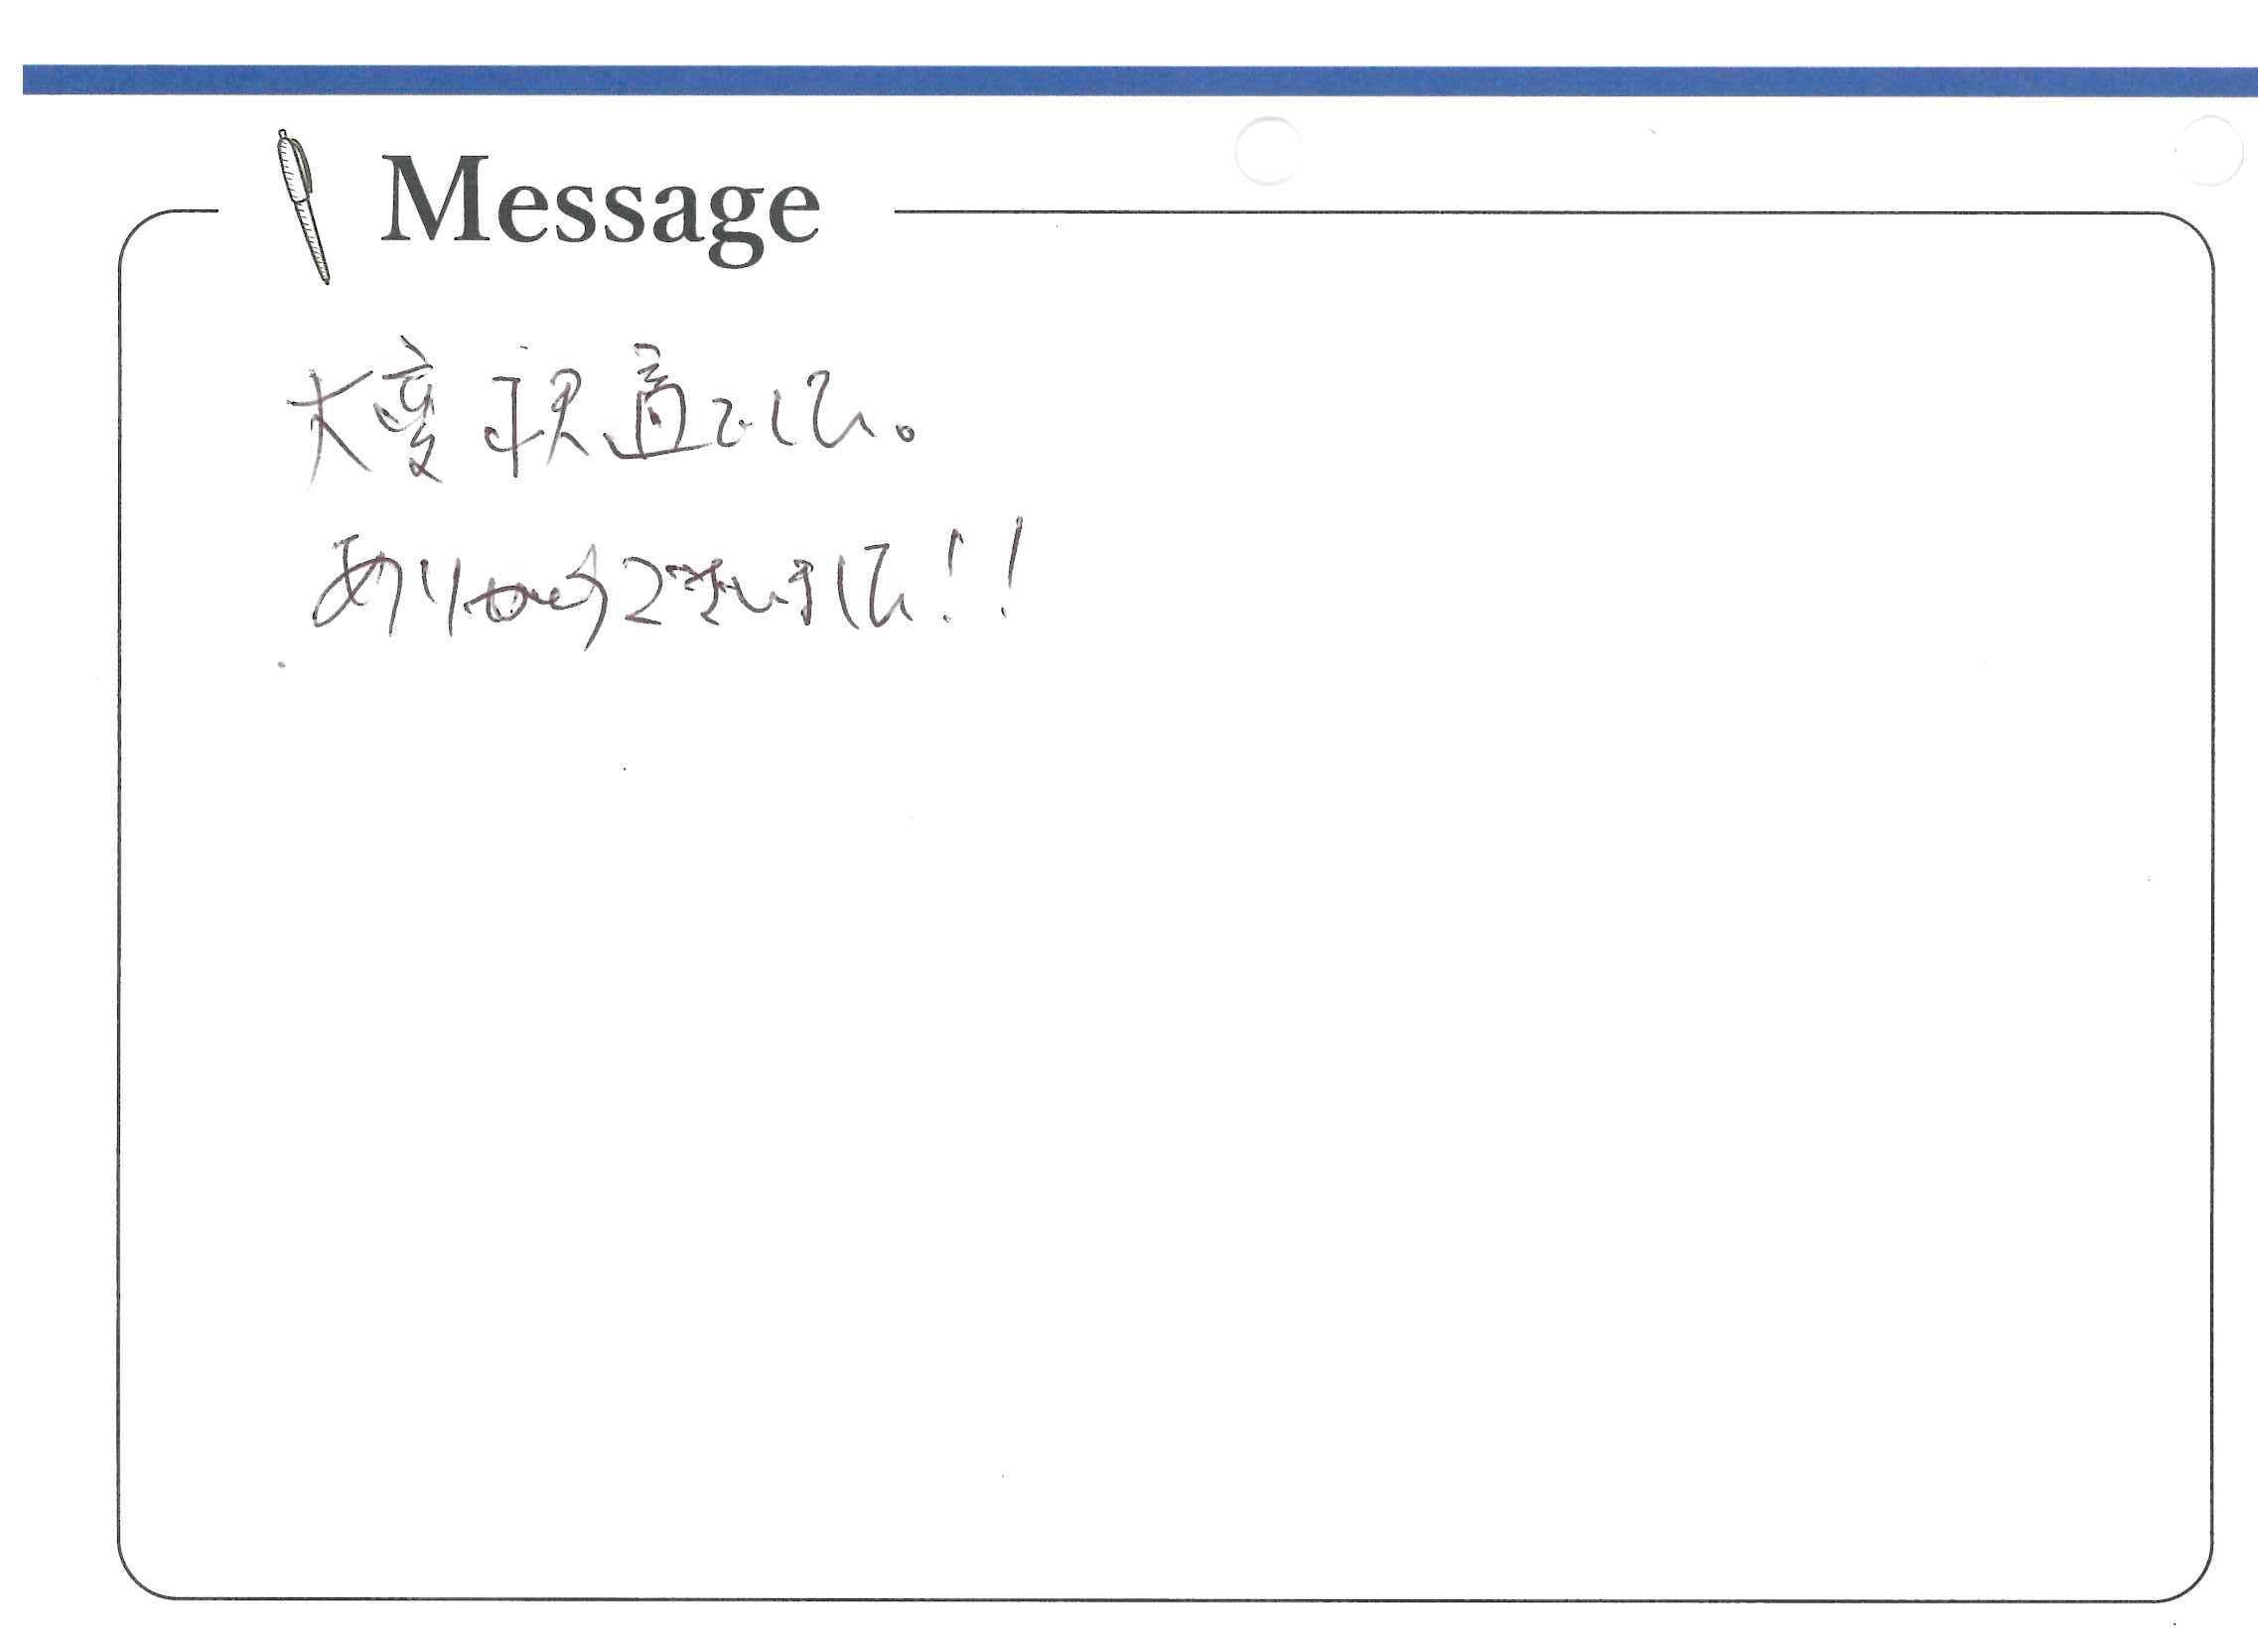 Message
大変快適でした。
ありがとうございました!!